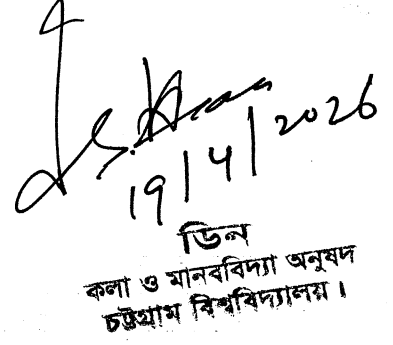 19/4/2026
ডিন
কলা ও মানববিদ্যা অনুষদ
চট্টগ্রাম বিশ্ববিদ্যালয়।